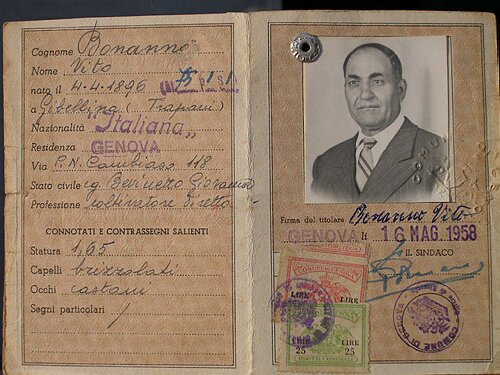 Cognome Bonanno
Nome Vito
nato il 4-4-1896
a Gibellina (Trapani)
Nazionalità "Italiana"
Residenza GENOVA
Via P.N. Cambiaso 118
Stato civile cg. Giovanna
Professione Coltivatore diretto
CONNOTATI E CONTRASSEGNI SALIENTI
Statura 1,65
Capelli brizzolati
Occhi castani
Segni particolari
Firma del titolare Bonanno Vito
GENOVA li 16 MAG 1958
IL SINDACO
COMUNE DI
LIRE
LIRE LIRE
25 25
DIRITTI COMUNALI